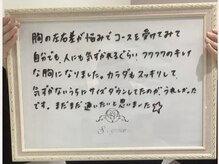 胸の左右差が悩みでコースを受けてみて
自分でも、人にも気ずかれるぐらい フワフワのキレイ
な胸になりました。カラダもスッキリして
気がないうちにサイズダウンしてたのがうれしかった
です。まだまだ通いたいと思いました☆